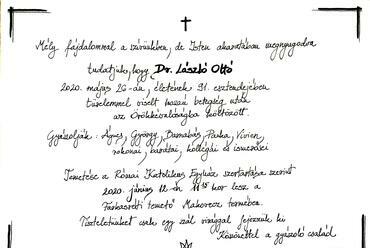 Mély fájdalommal a szívünkben, de Isten akaratában megnyugodva
tudatjuk, hogy Dr. László Ottó
2020. május 26-án, életének 91. esztendejében
türelemmel viselt hosszú betegség után
az Örökkévalóságba költözött.
Gyászolják: Ágnes, György, Barnabás, Pinka, Vivien,
rokonai, barátai, kollégái és ismerősei
Temetése a Római Katolikus Egyház szertartása szerint
2020. június 12-én 11 15 kor lesz a
Farkasréti temető Makovecz termében.
Tiszteletünket csak egy szál virággal fejezzük ki
Köszönettel a gyászoló család